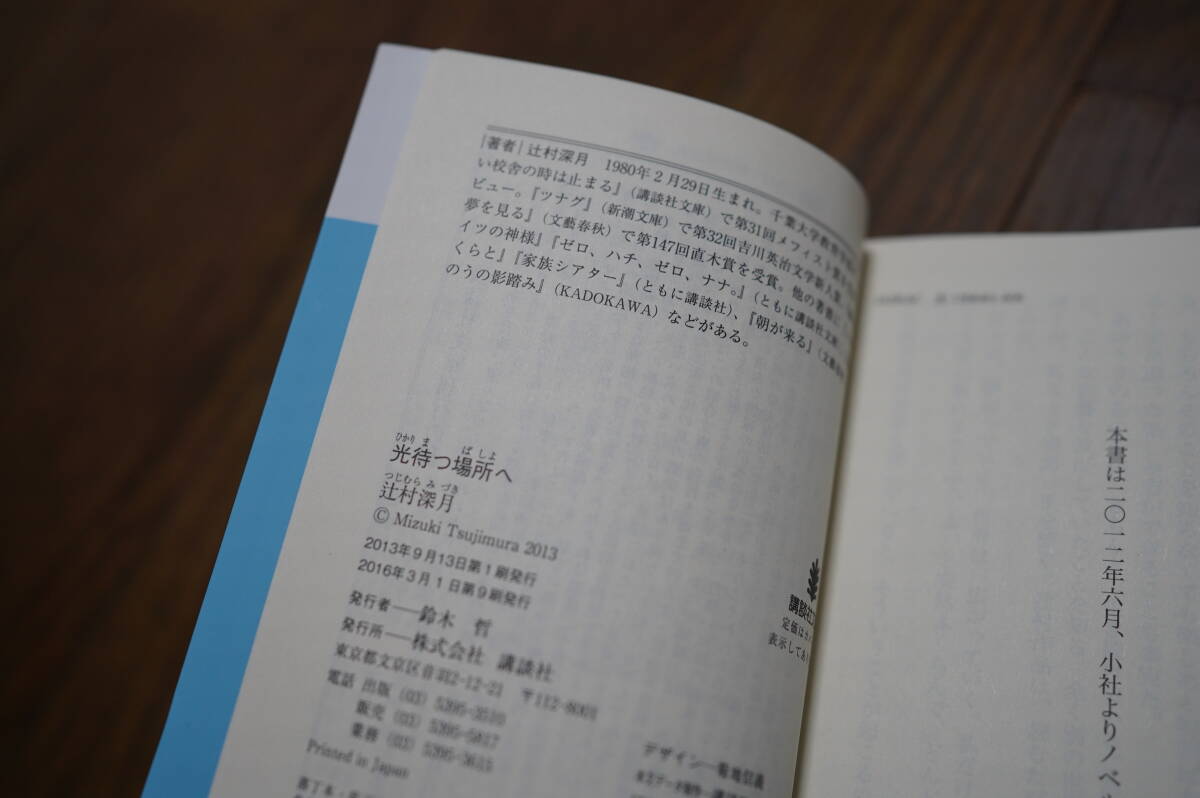 |著者| 辻村深月　1980年2月29日生まれ。千葉大学教育学部
い校舎の時は止まる』（講談社文庫）で第31回メフィスト賞を
ビュー。『ツナグ』（新潮文庫）で第32回吉川英治文学新人賞、
夢を見る』（文藝春秋）で第147回直木賞を受賞。他の著書に
イツの神様』『ゼロ、ハチ、ゼロ、ナナ。』（ともに講談社文庫）
くらと』『家族シアター』（ともに講談社）、『朝が来る』（文藝春秋
のうの影踏み』（KADOKAWA）などがある。
ひかり ま ばしよ
光待つ場所へ
つじむら み づき
辻村深月
© Mizuki Tsujimura 2013
2013年9月13日第1刷発行
2016年3月1日第9刷発行
発行者——鈴木 哲
発行所——株式会社 講談社
東京都文京区音羽2-12-21 〒112-8001
電話 出版 (03) 5395-3510
販売 (03) 5395-5817
業務 (03) 5395-3615
Printed in Japan
講談社文
定価はカバ
表示してあり
デザイン—菊地信義
本文データ制作—講談
本書は二〇一二年六月、小社よりノベル